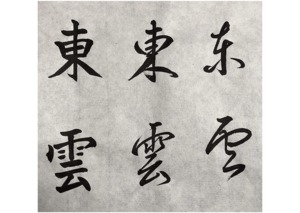 東 東 东
雲 雲 云